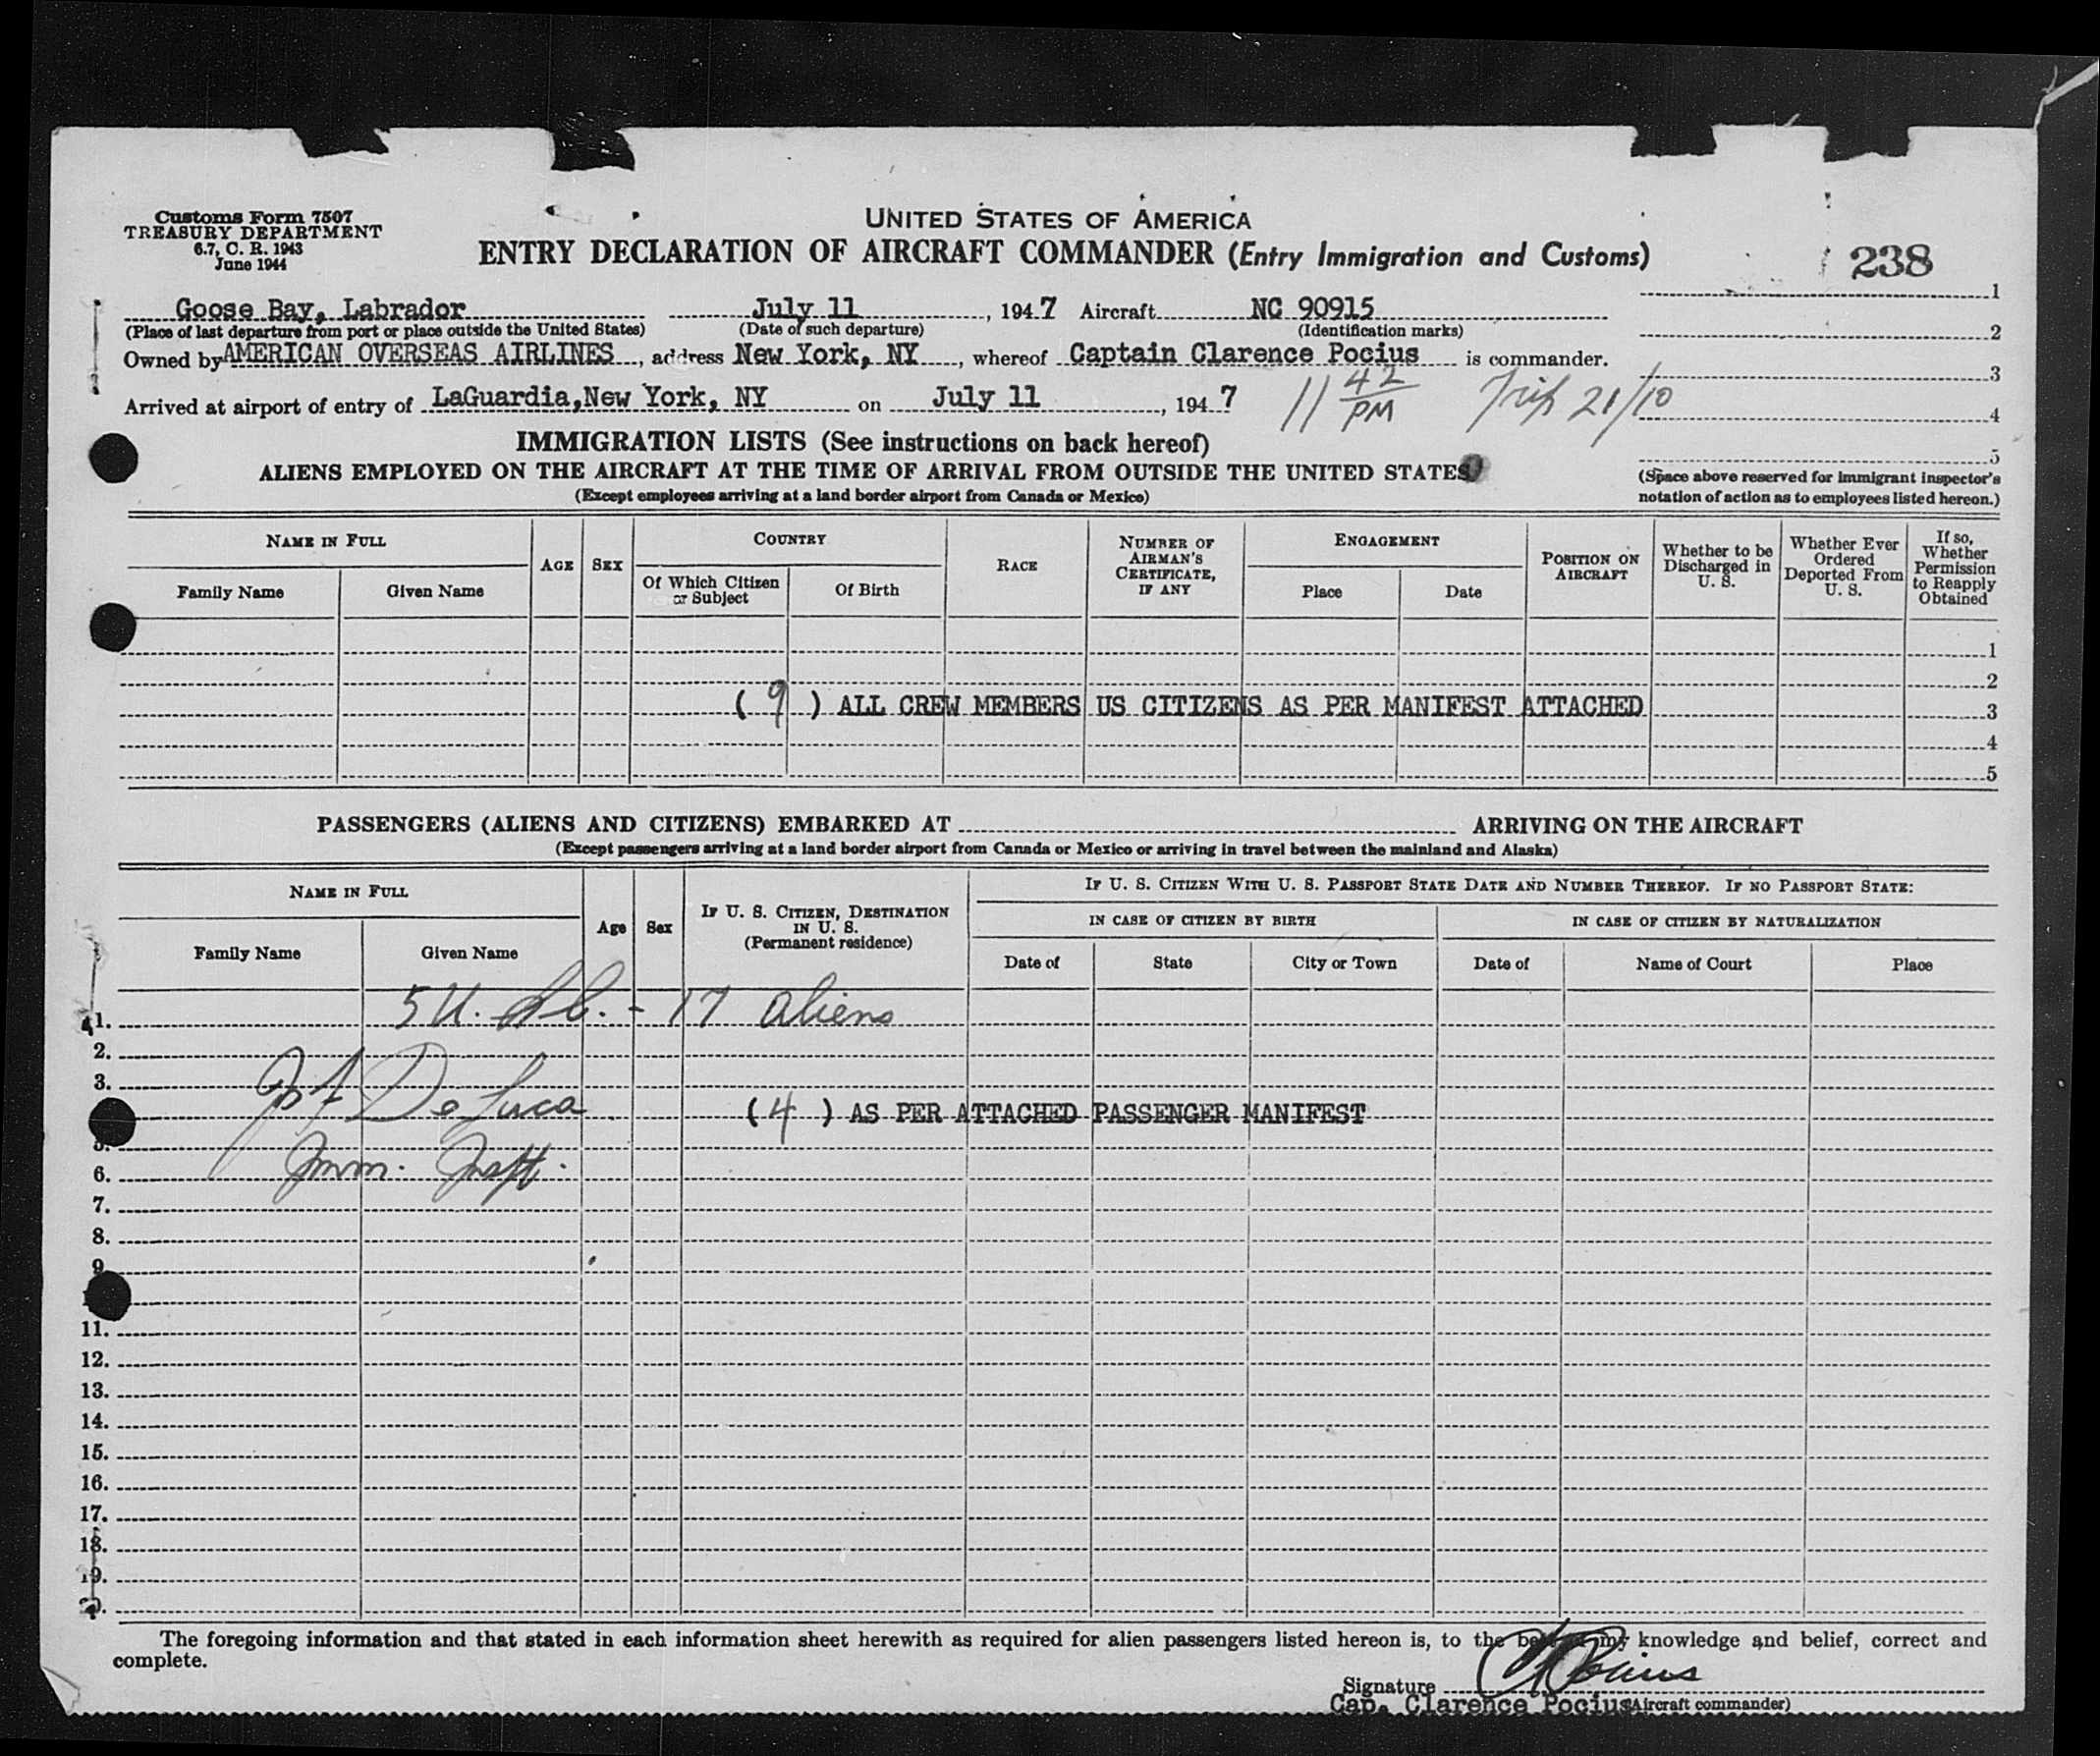 Customs Form 7507
TREASURY DEPARTMENT
6.7, C. R. 1943
June 1944
UNITED STATES OF AMERICA
ENTRY DECLARATION OF AIRCRAFT COMMANDER (Entry Immigration and Customs)
238
Goose Bay, Labrador July 11, 1947 Aircraft NC 90915
(Place of last departure from port or place outside the United States) (Date of such departure) (Identification marks)
Owned by AMERICAN OVERSEAS AIRLINES, address New York, NY, whereof Captain Clarence Pocius is commander.
Arrived at airport of entry of LaGuardia, New York, NY on July 11, 1947 11 42 PM Trip 21/10
1
2
3
4
5
(Space above reserved for immigrant inspector's
notation of action as to employees listed hereon.)
IMMIGRATION LISTS (See instructions on back hereof)
ALIENS EMPLOYED ON THE AIRCRAFT AT THE TIME OF ARRIVAL FROM OUTSIDE THE UNITED STATES
(Except employees arriving at a land border airport from Canada or Mexico)
NAME IN FULL
Family Name Given Name
AGE
SEX
COUNTRY
Of Which Citizen or Subject
Of Birth
RACE
NUMBER OF AIRMAN'S CERTIFICATE, IF ANY
ENGAGEMENT
Place Date
POSITION ON AIRCRAFT
Whether to be Discharged in U. S.
Whether Ever Ordered Deported From U. S.
If so, Whether Permission to Reapply Obtained
1
2
( 9 ) ALL CREW MEMBERS US CITIZENS AS PER MANIFEST ATTACHED 3
4
5
PASSENGERS (ALIENS AND CITIZENS) EMBARKED AT ARRIVING ON THE AIRCRAFT
(Except passengers arriving at a land border airport from Canada or Mexico or arriving in travel between the mainland and Alaska)
NAME IN FULL
Family Name Given Name
Age
Sex
IF U. S. CITIZEN, DESTINATION IN U. S.
(Permanent residence)
IF U. S. CITIZEN WITH U. S. PASSPORT STATE DATE AND NUMBER THEREOF. IF NO PASSPORT STATE:
IN CASE OF CITIZEN BY BIRTH
Date of State City or Town
IN CASE OF CITIZEN BY NATURALIZATION
Date of Name of Court Place
1. 5 U.S.C. - 17 aliens
2.
3.
De Luca ( 4 ) AS PER ATTACHED PASSENGER MANIFEST
5.
6. Imm. Inspt.
7.
8.
9.
11.
12.
13.
14.
15.
16.
17.
18.
19.
20.
The foregoing information and that stated in each information sheet herewith as required for alien passengers listed hereon is, to the best of my knowledge and belief, correct and
complete.
Signature C Pocius
Cap. Clarence Pocius (Aircraft commander)